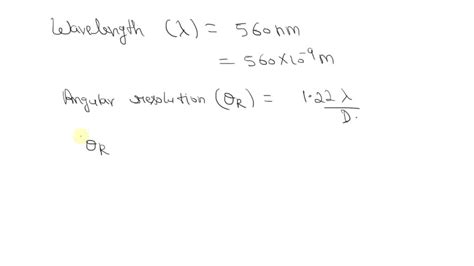 Wavelength (λ) = 560nm
= 560×10⁻⁹m
Angular resolution (θ_R) = 1.22λ/D.
θ_R